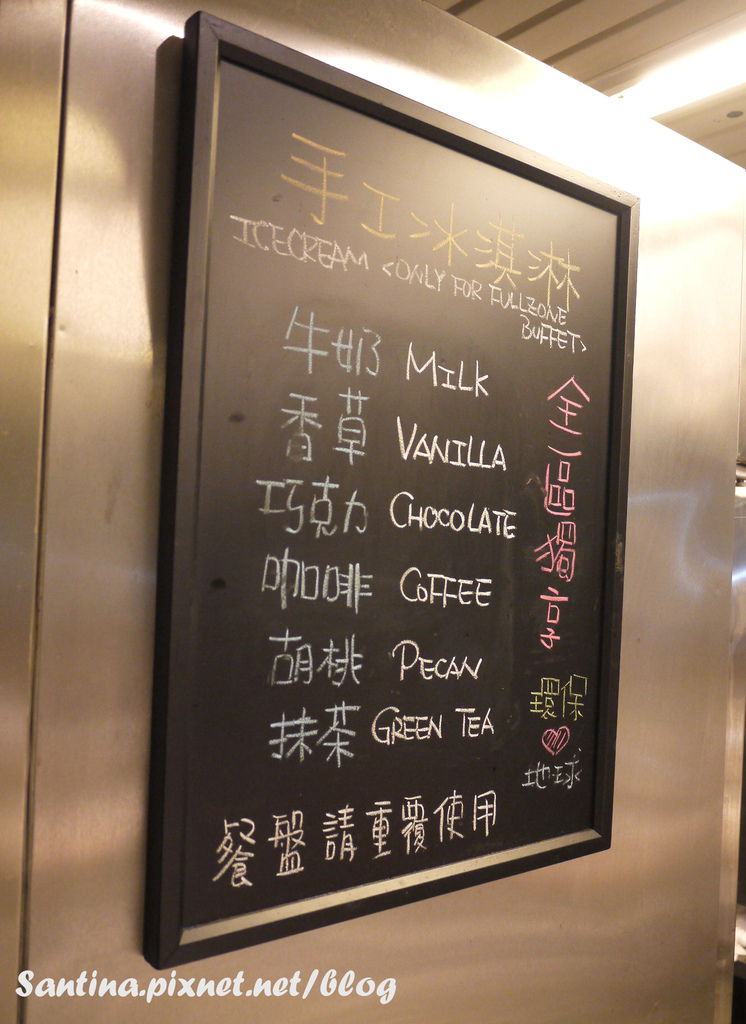 手工冰淇淋
ICECREAM <ONLY FOR FULLZONE
BUFFET>
牛奶 MILK
香草 VANILLA
巧克力 CHOCOLATE
咖啡 COFFEE
胡桃 PECAN
抹茶 GREEN TEA
全區獨享
環保
地球
餐盤請重覆使用
Santina.pixnet.net/blog